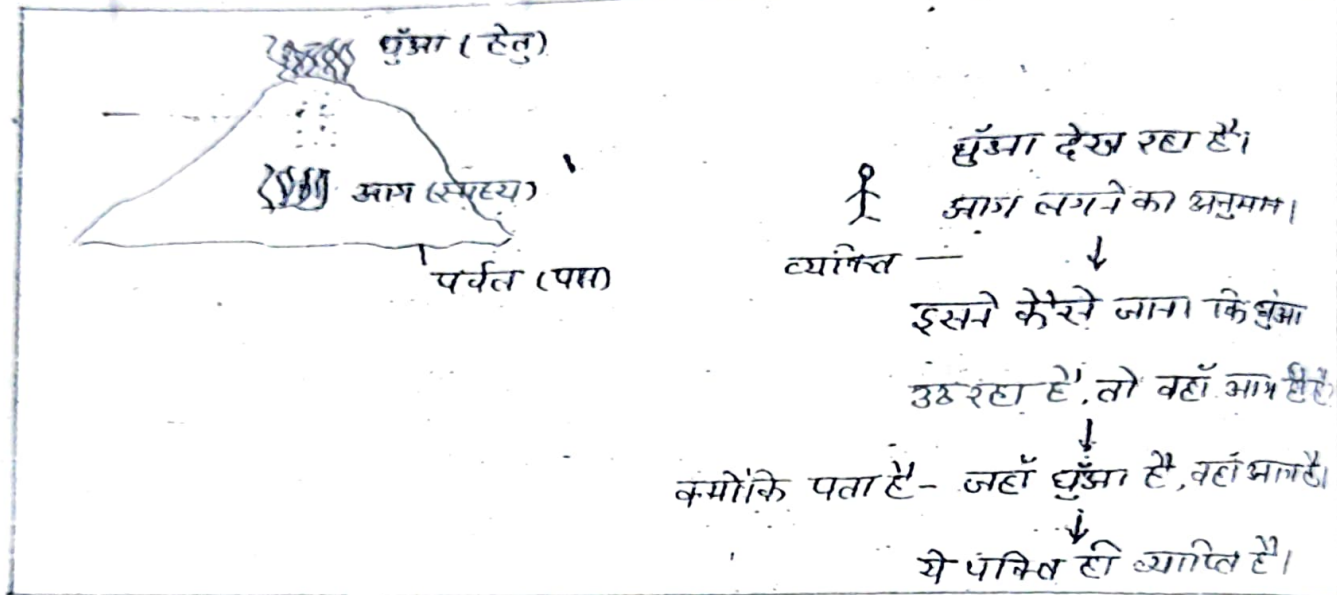 धुँआ (हेतु)
आग (साध्य)
पर्वत (पक्ष)
धुँआ देख रहा है।
आग लगने का अनुमान।
व्यक्ति —
↓
इसने कैसे जाना कि धुंआ
उठ रहा है, तो वहाँ आग ही है।
↓
क्योंकि पता है - जहाँ धुँआ है, वहाँ आग है।
↓
ये पंक्ति ही व्याप्ति है।